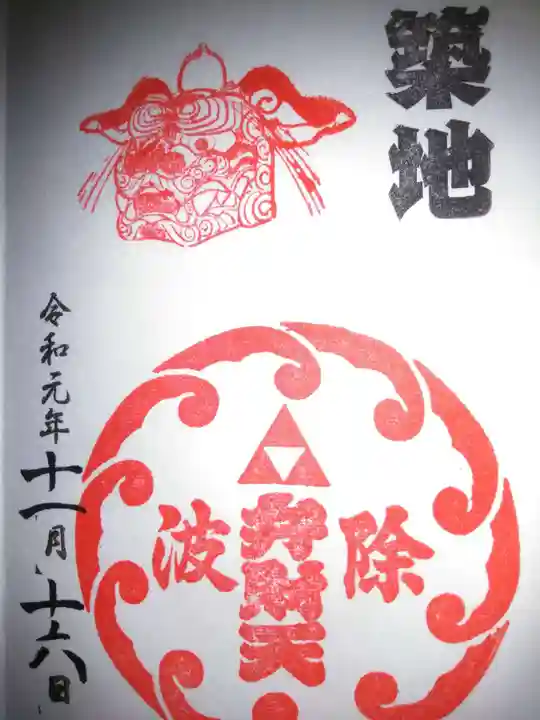 築地
除
波
弁財天
令和元年十一月十六日